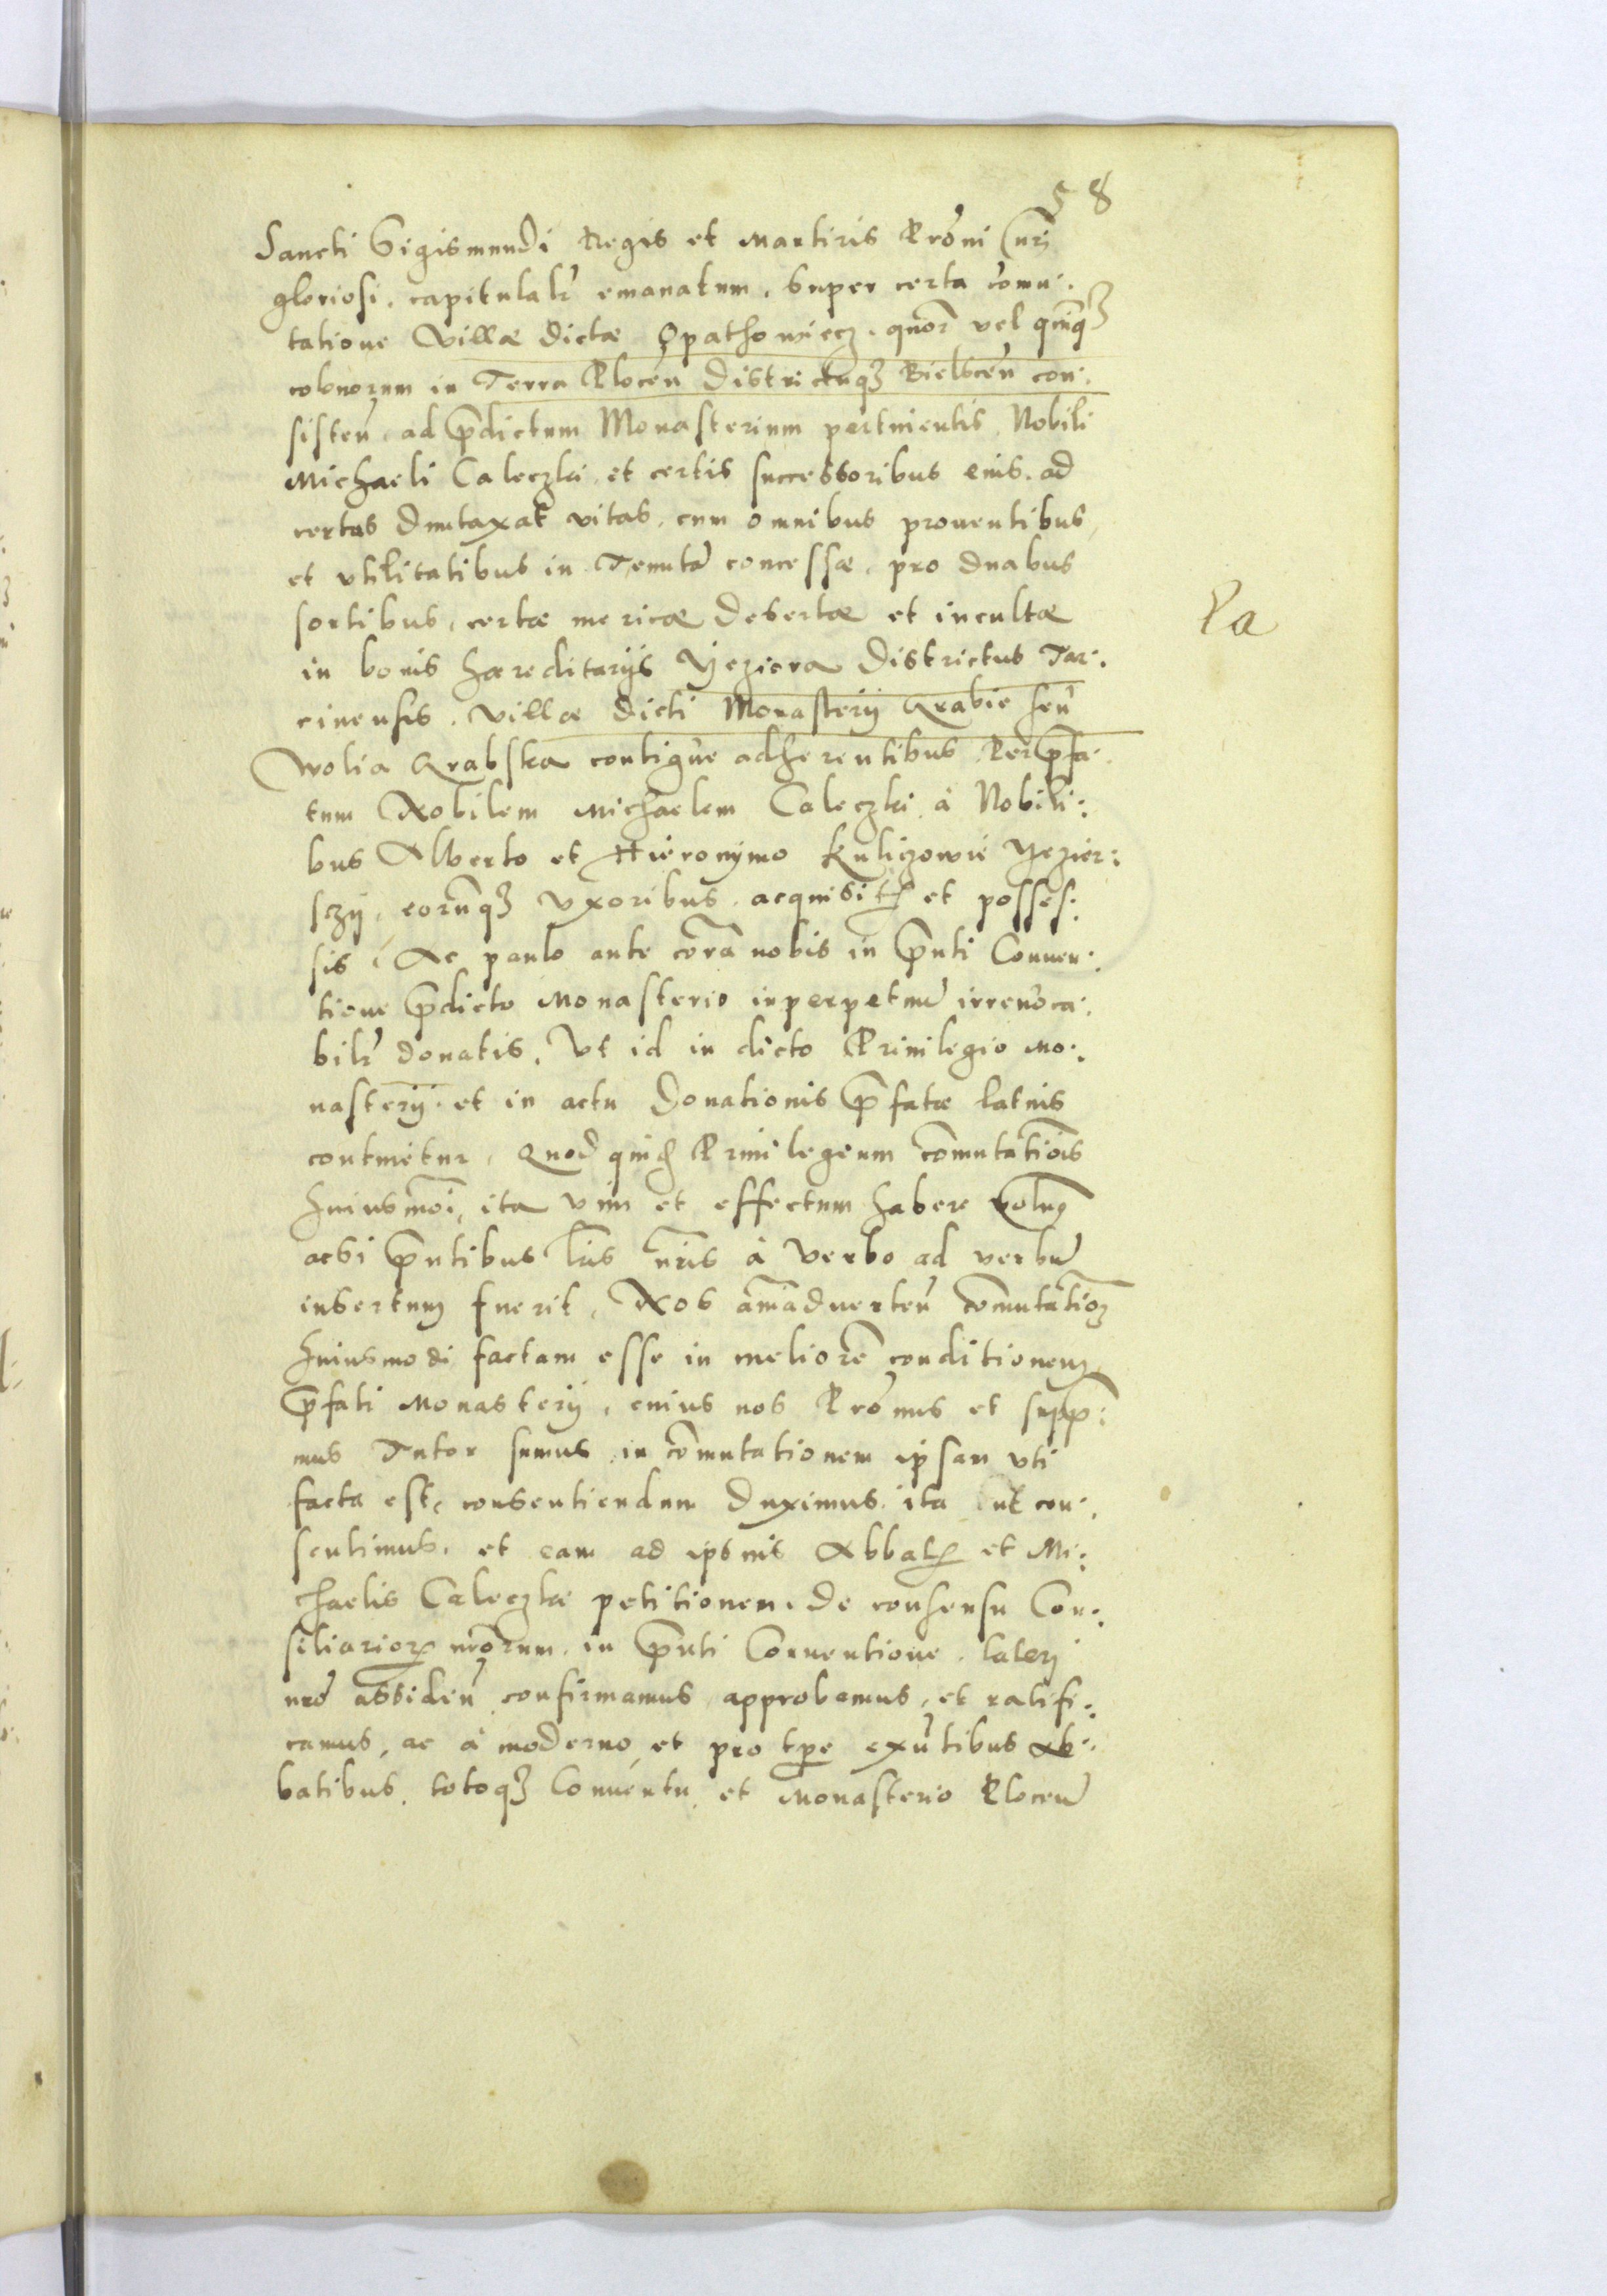 58
Sancti Sigismundi Regis et Martiris Prõni nri
gloriosi, capitulalr emanatum, super certa comu:
tatione Villæ dictæ Opathowiecz, quor vel quinq3
colonorum in Terra Plocen Districtuq3 Bielscen con:
sisten, ad pdictum Monasterium pertinentis, Nobili
Michaeli Caleczki et certis successoribus eius, ad
certas duntaxat vitas, cum omnibus prouentibus,
et vtilitatibus in Tenutã concessæ, pro duabus
sortibus, certæ mericæ desertæ et incultæ
La
in bonis hæreditarijs Yeziora Districtus Tar:
cinensis, villæ dicti Monasterij Arabie seu
Wolia Arabska contigue adherentibus, Per pfa:
tum Nobilem Michaelem Caleczki, à Nobili:
bus Alberto et Hieronymo Kuligowie Yezier:
sczÿ, eorũq3 Vxoribus, acquisitis et posses:
sis, Ac paulo ante corã nobis in pnti Conuen:
tione pdicto Monasterio inperpetuũ irreuoca:
bilr donatis, Vt id in dicto Priuilegio Mo:
nasterij, et in actu Donationis pfatæ latius
continetur, Quod quid Priuilegeum comutatiõis
huiusmõi, ita vim et effectum habere volum9
acsi pntibus lris nris à Verbo ad verbũ
insertum fuerit, Nos aĩmaduerten comutationem
huiusmodi factam esse in meliorẽ conditionem
pfati Monasterij, cuius nos Prõnus et supp:
mus Tutor sumus, in comutationem ipsam vti
facta est, consentiendum Duximus, ita ut con:
sentimus, et eam ad ipsius Abbatis et Mi:
chaelis Caleczki petitionem, de consensu Con:
siliarior nrorum, in pnti Conuentione, lateri
nro assiden, confirmamus, approbamus, et ratifi:
camus, ac à moderno, et pro tpe exñtibus Ab:
batibus, totoq3 Conuentu, et Monasterio Plocen